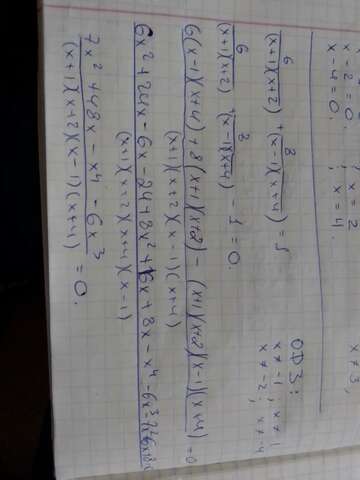 x-2=0. ; x=2
x-4=0. ; x=4.
x≠3,
6/((x+1)(x+2)) + 8/((x-1)(x+4)) = 1
ОДЗ:
x≠-1; x≠1
x≠-2; x≠-4
6/((x+1)(x+2)) + 8/((x-1)(x+4)) - 1 = 0.
(6(x-1)(x+4)+8(x+1)(x+2)-(x+1)(x+2)(x-1)(x+4))/((x+1)(x+2)(x-1)(x+4)) =0
6x²+24x-6x-24+8x²+16x+8x-x⁴-6x³-7x²
(x+1)(x+2)(x+4)(x-1)
(7x²+48x-x⁴-6x³)/((x+1)(x+2)(x-1)(x+4)) =0.